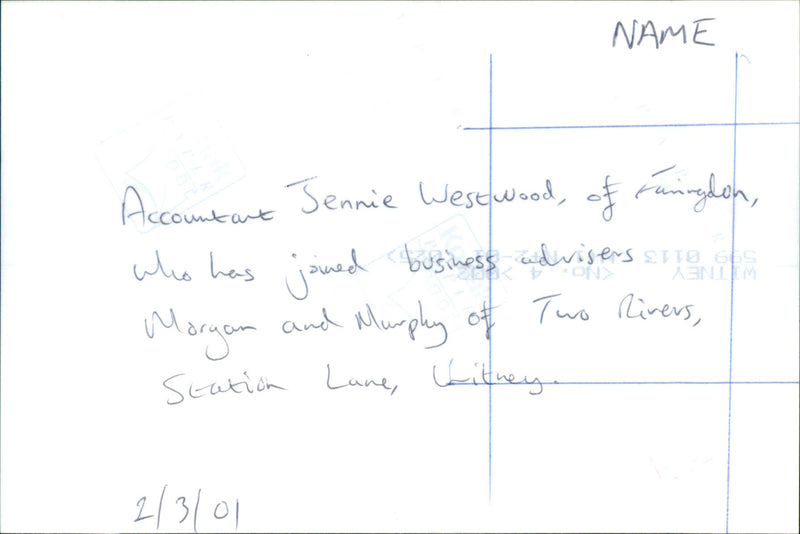 NAME
Accountant Jennie Westwood, of Faringdon,
who has joined business advisers
Morgan and Murphy of Two Rivers,
Station Lane, Witney.
2/3/01
WITNEY <No. 4